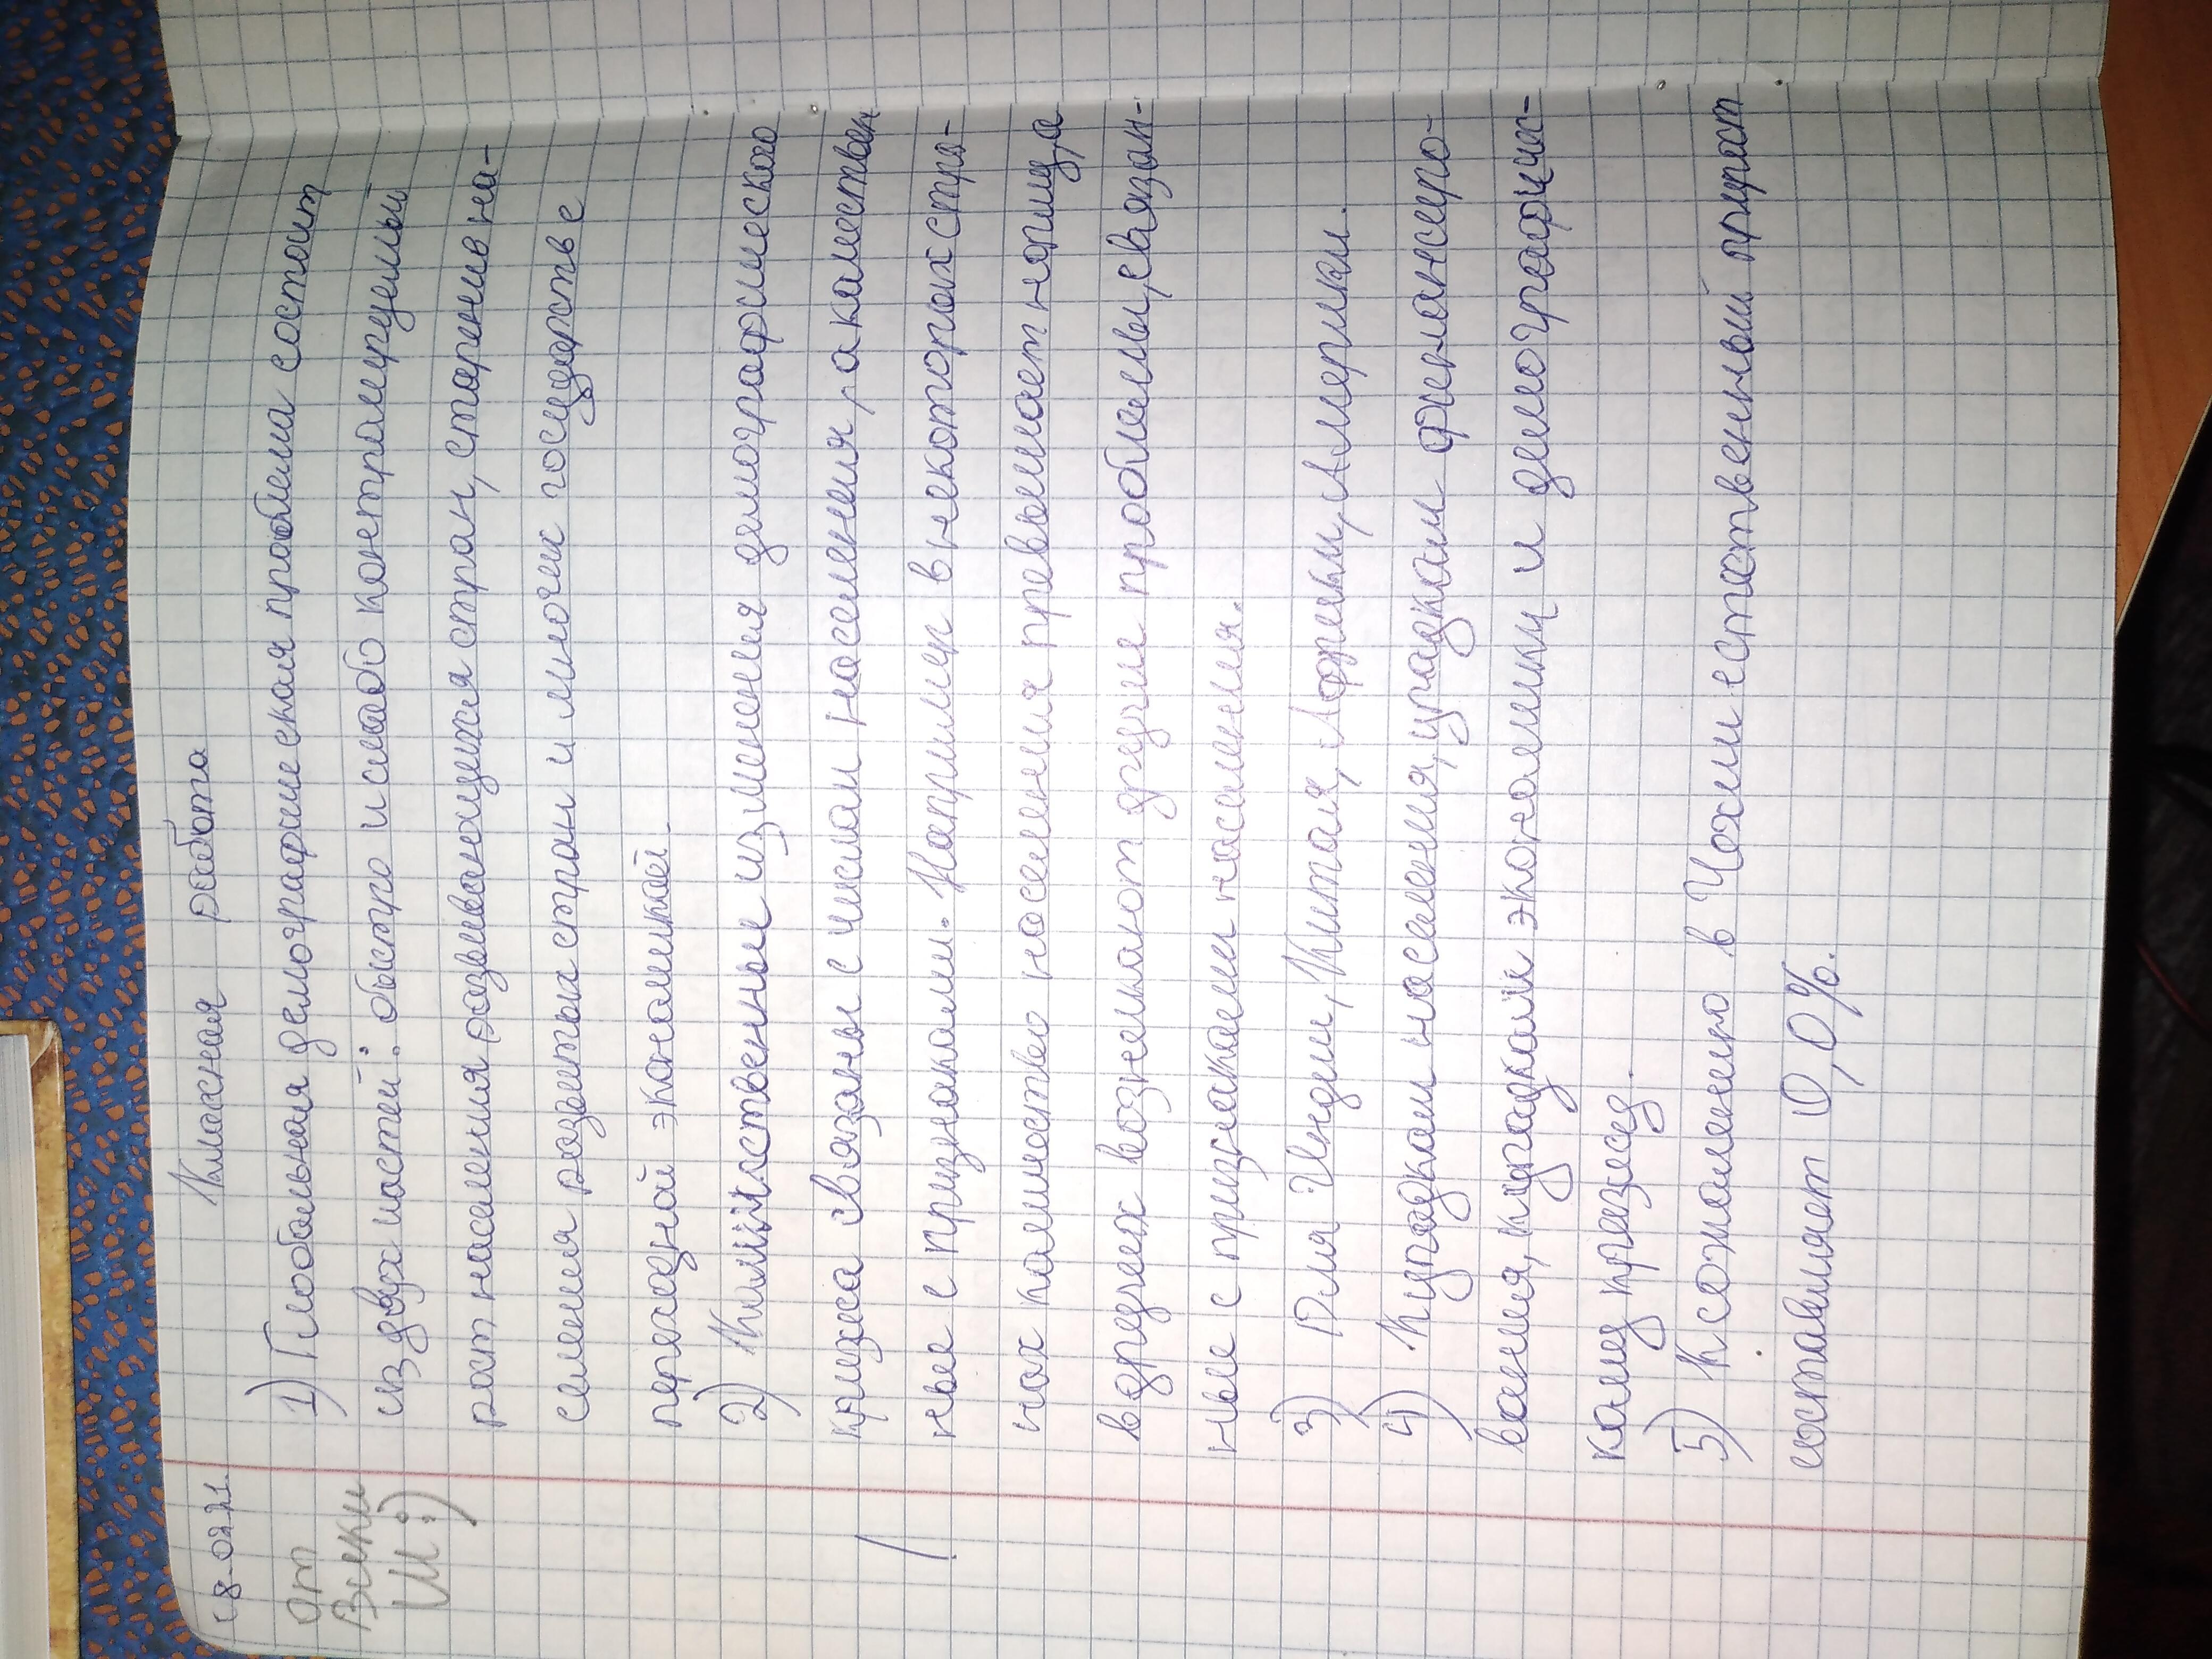 18.02.21.
Класная работа
от
Вики
Ш :)
1) Глобальная демографическая проблема состоит
из двух частей: быстро и слабо контролируемый
рост населения развивающихся стран, старение на-
селения развитых стран и многих государств с
переходной экономикой.
2) ственные изменения демографического
кризиса связаны с числом населения, а качествен
ные с признаками. Например в некоторых стра-
нах количество населения превышает норму, а
в других возникают другие проблемы, связан-
ные с признаками населения.
3) Для Индии, Китая, Африки, Америки.
4) К упадкам населения, упадкам финансиро-
вания, к упадкам экономики и демографичес-
кому кризису.
5) К сожалению в Чехии естественный прирост
составляет 0,0%.